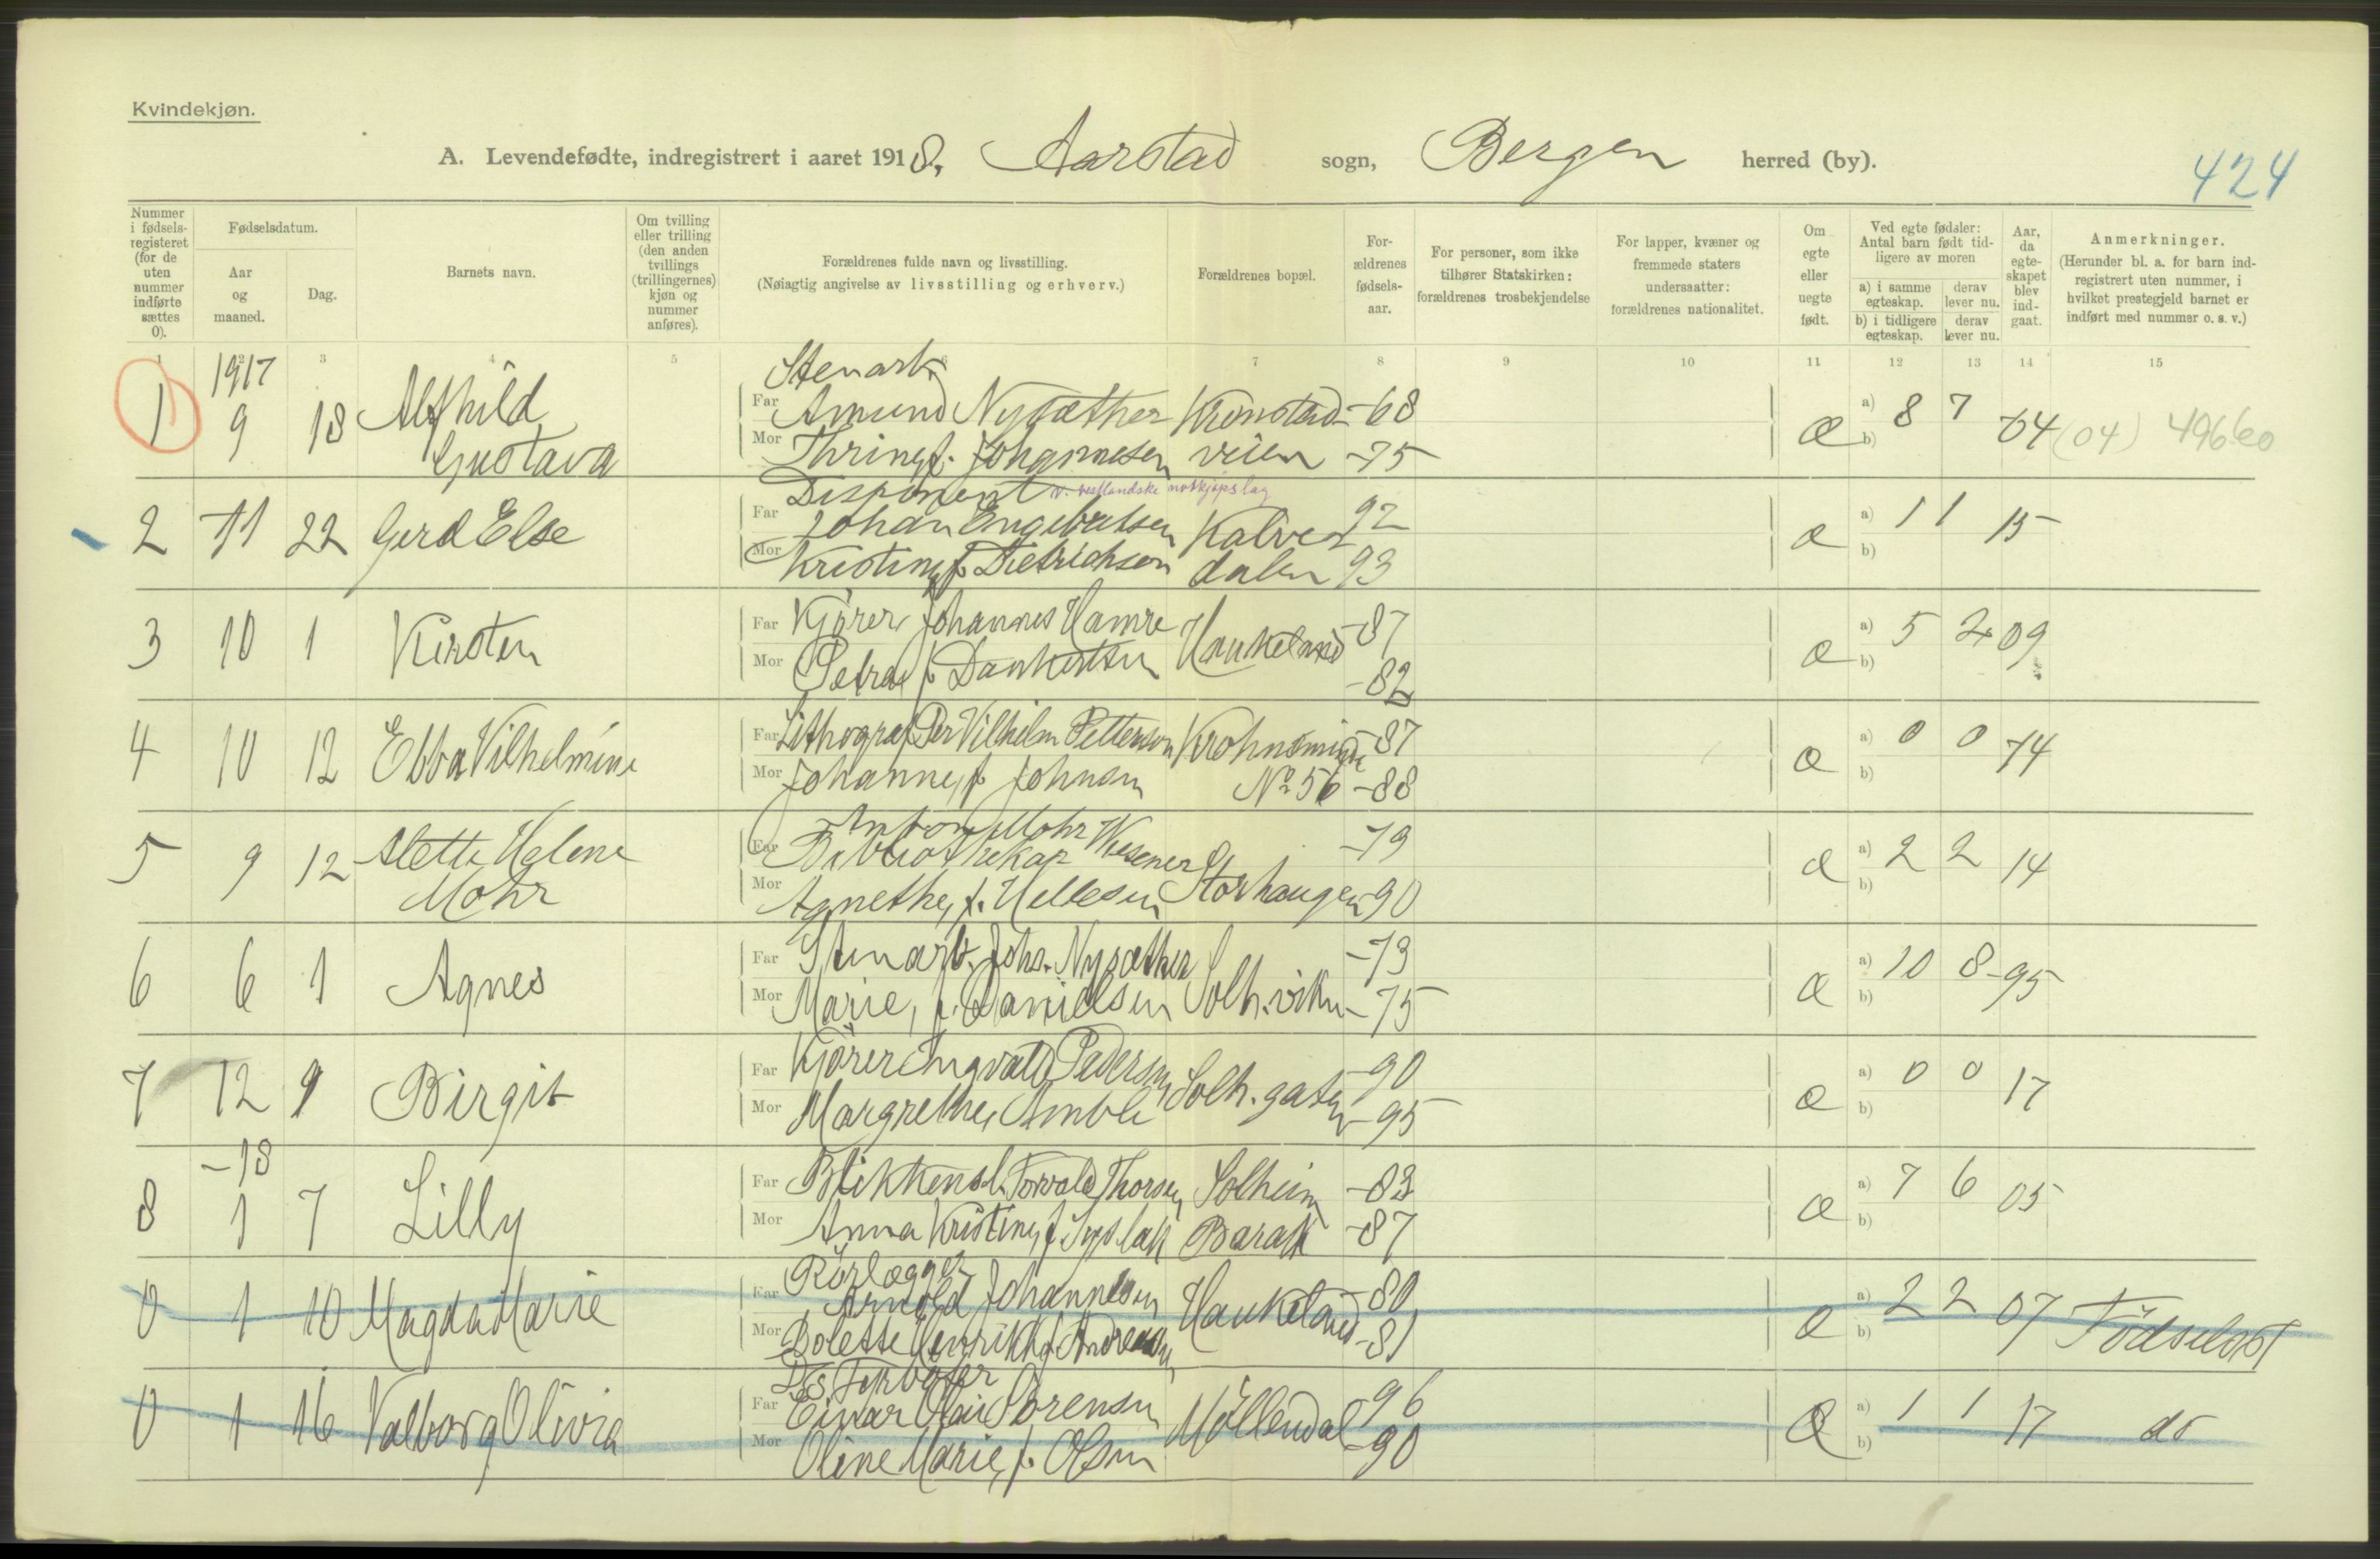 Kvindekjøn.
A. Levendefødte, indregistrert i aaret 1918. Aarstad sogn, Bergen herred (by).
424
Nummer i fødsels-registeret (for de uten nummer indførte sættes 0).
Fødselsdatum.
Aar og maaned.
Dag.
Barnets navn.
Om tvilling eller trilling (den anden tvillings (trillingernes) kjøn og nummer anføres).
Forældrenes fulde navn og livsstilling.
(Nøiagtig angivelse av livsstilling og erhverv.)
Forældrenes bopæl.
For-ældrenes fødsels-aar.
For personer, som ikke tilhører Statskirken: forældrenes trosbekjendelse
For lapper, kvæner og fremmede staters undersaatter: forældrenes nationalitet.
Om egte eller uegte født.
Ved egte fødsler: Antal barn født tid-ligere av moren
a) i samme egteskap.
derav lever nu.
b) i tidligere egteskap.
derav lever nu.
Aar, da egte-skapet blev ind-gaat.
Anmerkninger.
(Herunder bl. a. for barn ind-registrert uten nummer, i hvilket prestegjeld barnet er indført med nummer o. s. v.)
1 3 4 5 6 7 8 9 10 11 12 13 14 15
1917 Stenarb.
1 9 18 Alfhild Far Amund Nysæther Kronstad- -68 Æ a) 8 7 04 (04) 49660
Gustava Mor Thrine, f. Johannesen veien -75 b)
Disponent v. vestlandske notkjøpslag
2 11 22 Gerd Else Far Johan Engebretsen Kalve- 92 æ a) 1 1 15
Mor Kristine, f. Dietrichsen dalen 93 b)
3 10 1 Kirsten Far Kjører, Johannes Hamre Haukeland -87 æ a) 5 2 09
Mor Petra f. Dankertsen -82 b)
4 10 12 Ebba Vilhelmine Far Lithograf Per Vilhelm Petterson Krohnsminde -87 æ a) 0 0 14
Mor Johanne, f. Johnsen No 56 -88 b)
Anton Mohr Wiesener -79
5 9 12 Alette Helene Far Bibliothekar Storhaugen æ a) 2 2 14
Mohr Mor Agnethe, f. Hellesen -90 b)
6 6 1 Agnes Far Stenarb. Johs. Nysæther Solh.viken -73 æ a) 10 8 -95
Mor Marie, f. Danielsen -75 b)
7 12 9 Birgit Far Kjører Ingvald Pedersen Solh.gaten -90 æ a) 0 0 17
Mor Margrethe, Amble -95 b)
-18
8 1 7 Lilly Far Blikkensl. Torvald Thorsen Solheim -83 æ a) 7 6 05
Mor Anna Kristine, f. Barak -87 b)
Rørlægger
0 1 10 Magda Marie Far Arnold Johannesen Haukeland -80 æ a) 2 2 07 Fødselsst
Mor Bolette Henrikke f. Andreassen -81 b)
0 1 16 Valborg Olivia Far Einar Olai Sørensen Møllendal -96 Æ a) 1 1 17 do
Mor Oline Marie, f. Olsen -90 b)